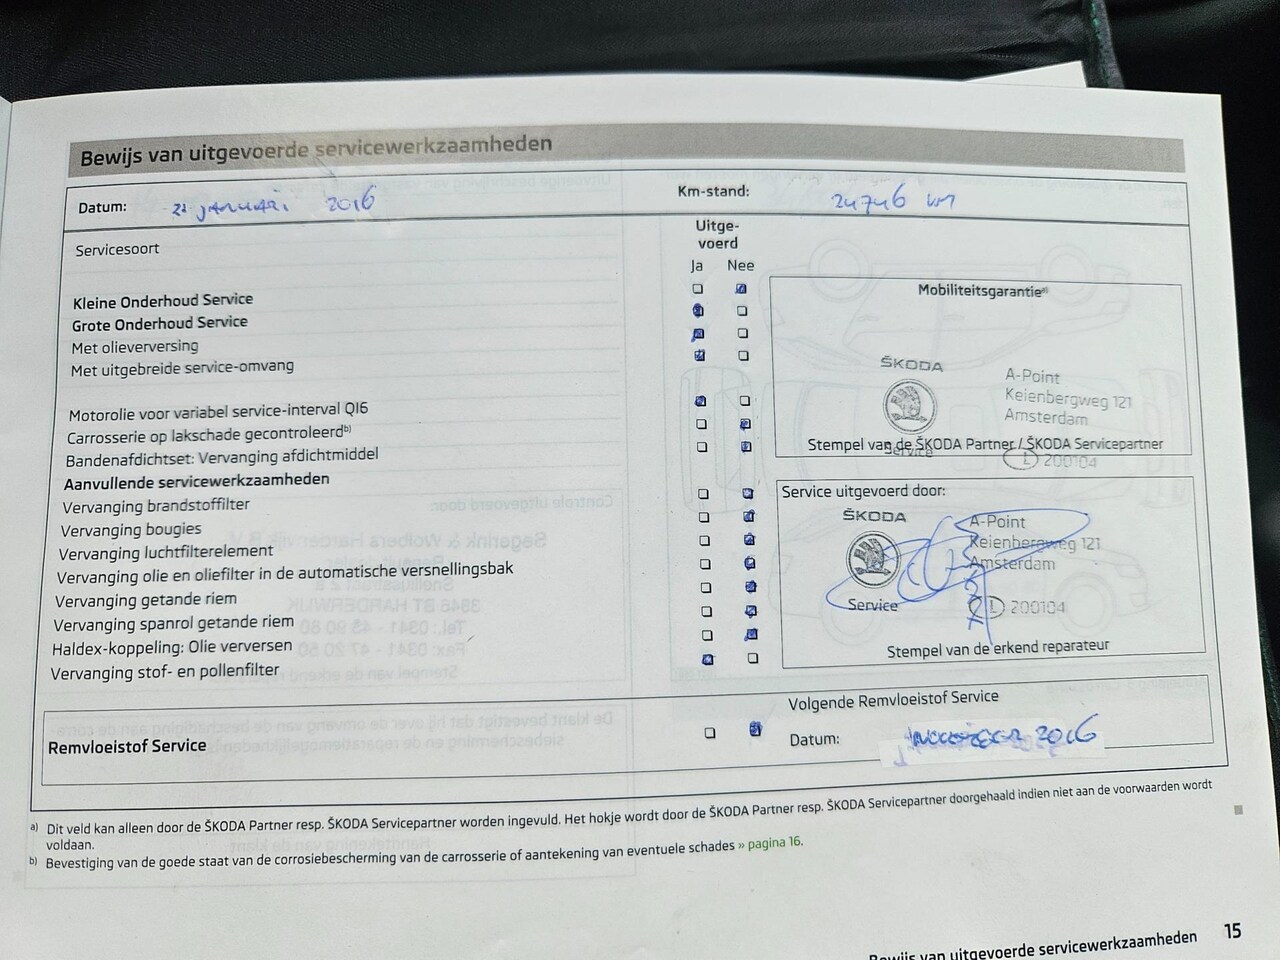 Bewijs van uitgevoerde servicewerkzaamheden
Datum: 21 JANUARI 2016
Km-stand: 24746 KM
Servicesoort
Uitge-
voerd
Ja Nee
Kleine Onderhoud Service
Grote Onderhoud Service
Met olieverversing
Met uitgebreide service-omvang
Motorolie voor variabel service-interval QI6
Carrosserie op lakschade gecontroleerd b)
Bandenafdichtset: Vervanging afdichtmiddel
Aanvullende servicewerkzaamheden
Vervanging brandstoffilter
Vervanging bougies
Vervanging luchtfilterelement
Vervanging olie en oliefilter in de automatische versnellingsbak
Vervanging getande riem
Vervanging spanrol getande riem
Haldex-koppeling: Olie verversen
Vervanging stof- en pollenfilter
Mobiliteitsgarantie a)
ŠKODA
A-Point
Keienbergweg 121
Amsterdam
Stempel van de ŠKODA Partner / ŠKODA Servicepartner
Service
L 200104
Service uitgevoerd door:
ŠKODA
A-Point
Keienbergweg 121
Amsterdam
Service
L 200104
Stempel van de erkend reparateur
Remvloeistof Service
Volgende Remvloeistof Service
Datum: 2016
a) Dit veld kan alleen door de ŠKODA Partner resp. ŠKODA Servicepartner worden ingevuld. Het hokje wordt door de ŠKODA Partner resp. ŠKODA Servicepartner doorgehaald indien niet aan de voorwaarden wordt
voldaan.
b) Bevestiging van de goede staat van de corrosiebescherming van de carrosserie of aantekening van eventuele schades » pagina 16.
Bewijs van uitgevoerde servicewerkzaamheden 15